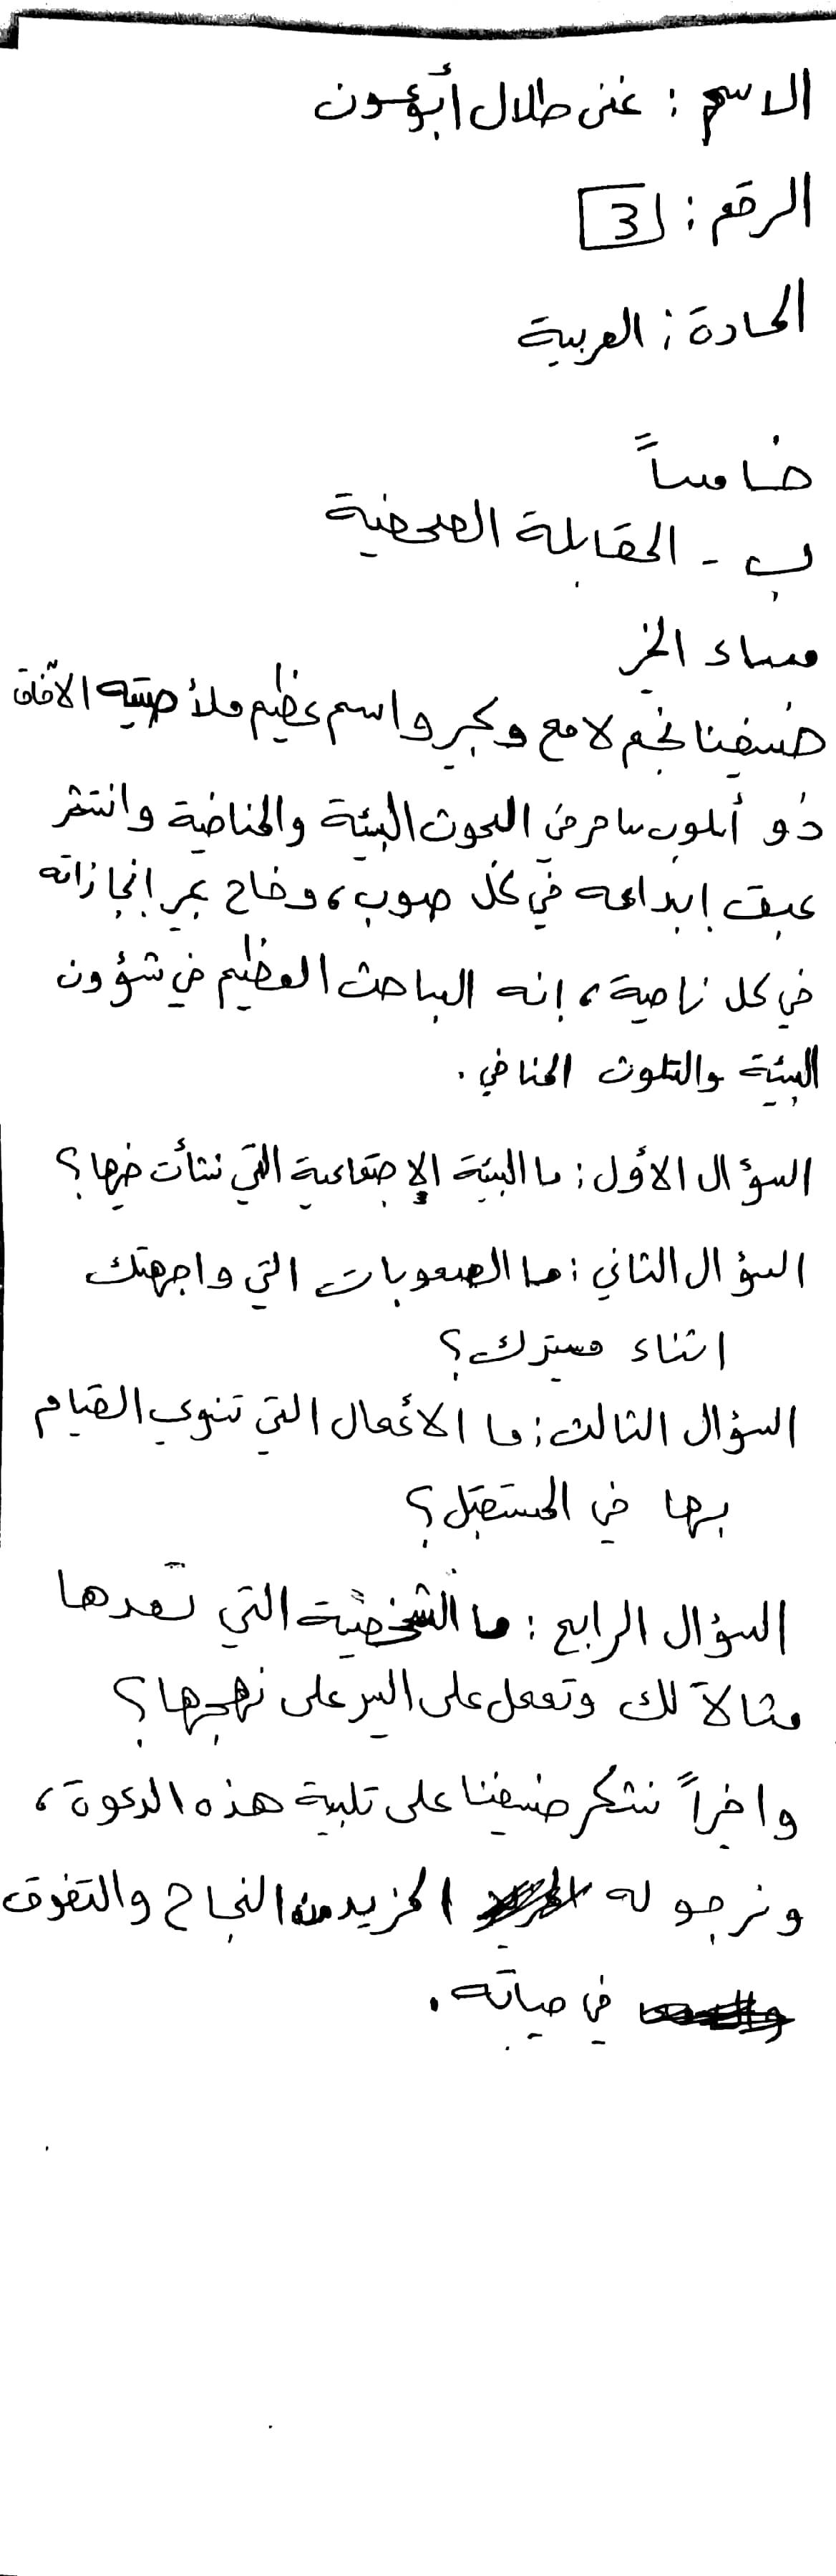 الاسم : غنى طلال أبؤعسون
الرقم : 3
المادة : العربية
خامساً
ب - المقابلة الصحفية
مساء الخير
ضيفنا نجم لامع وكبير واسم عظيم ملأ صيته الآفاق
ذو أسلوب ساحر في البحوث البيئة والمناخية وانتشر
عبق إبداعه في كل صوب، وفاح عبير إنجازاته
في كل ناحية، إنه الباحث العظيم في شؤون
البيئة والتلوث المناخي .
السؤال الأول : ما البيئة الإجتماعية التي نشأت فيها؟
السؤال الثاني : ما الصعوبات التي واجهتك
اثناء مسيرتك؟
السؤال الثالث : ما الأعمال التي تنوي القيام
بها في المستقبل؟
السؤال الرابع : ما الشخصية التي تعدها
مثالاً لك وتعمل على السير على نهجها؟
واخيراً نشكر ضيفنا على تلبية هذه الدعوة،
ونرجو له المزيد من النجاح والتفوق
في حياته .